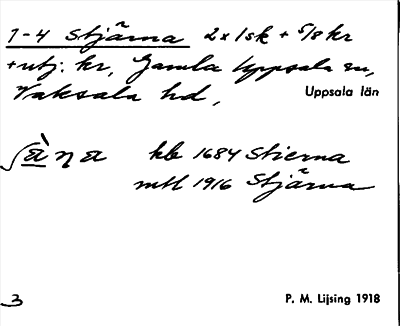 1-4 Stjärna 2x1sk + 5/8 kr
+ utj. kr, Gamla Uppsala sn,
Vaksala hd,
Uppsala län
kb 1684 Stierna
mtl 1916 Stjärna
3
P. M. Lijsing 1918